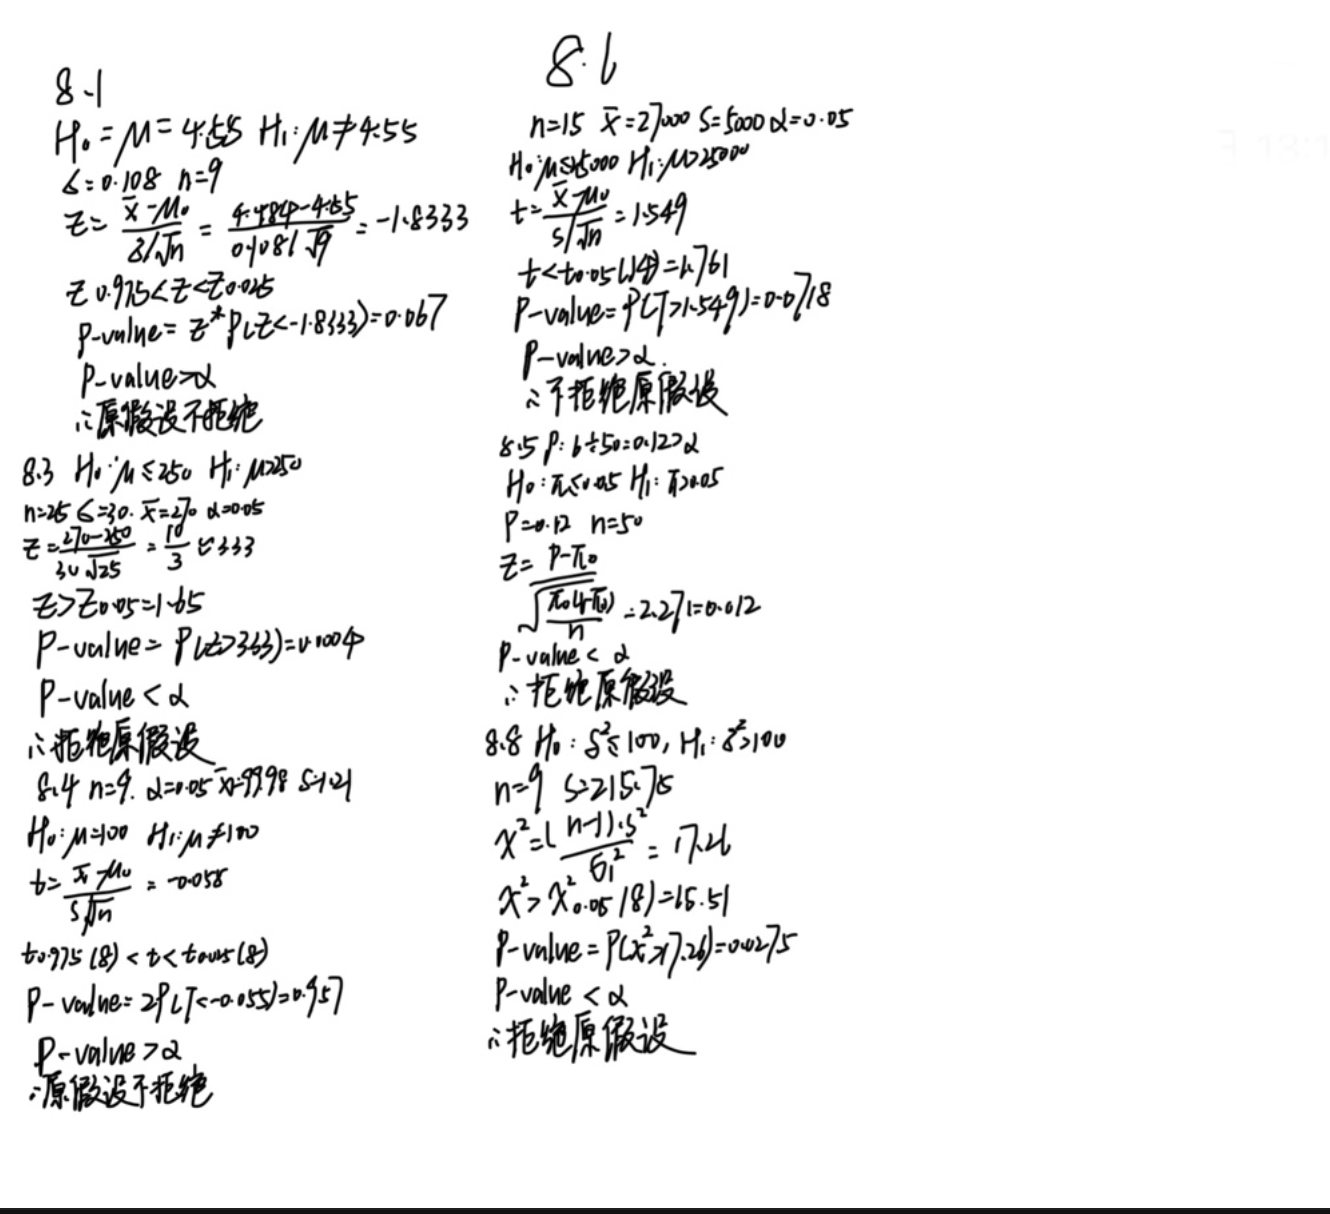 8.1
H₀=μ=4.55 H₁:μ≠4.55
σ=0.108 n=9
Z=(x̄-μ₀)/(σ/√n)=(4.484-4.55)/(0.108/√9)=-1.8333
Z0.975<Z<Z0.025
P-value=2*P(Z<-1.8333)=0.067
P-value>α
∴原假设不拒绝
8.3 H₀:μ≤250 H₁:μ>250
n=25 σ=30. x̄=270 α=0.05
Z=(270-250)/(30√25)=10/3≈333
Z>Z0.05=1.65
P-value=P(Z>333)=0.0004
P-value<α
∴拒绝原假设
8.4 n=9. α=0.05 x̄=99.98 S=1.21
H₀:μ=100 H₁:μ≠100
t=(x̄-μ₀)/(S/√n)=-0.055
t0.975(8)<t<t0.025(8)
P-value=2P(T<-0.055)=0.957
P-value>α
∴原假设不拒绝
8.6
n=15 x̄=27000 S=5000 α=0.05
H₀:μ≤25000 H₁:μ>25000
t=(x̄-μ₀)/(s/√n)=1.549
t<t0.05(14)=1.761
P-value=P(T>1.549)=0.0718
P-value>α.
∴不拒绝原假设
8.5 P:6÷50=0.12>α
H₀:π≤0.05 H₁:π>0.05
P=0.12 n=50
Z=(P-π₀)/√(π₀(1-π₀)/n)=2.271=0.012
P-value<α
∴拒绝原假设
8.8 H₀:δ²≤100, H₁:δ²>100
n=9 S=215.75
χ²=(n-1)·s²/σ₁²=17.26
χ²>χ²0.05(8)=15.51
P-value=P(χ²>17.26)=0.0275
P-value<α
∴拒绝原假设